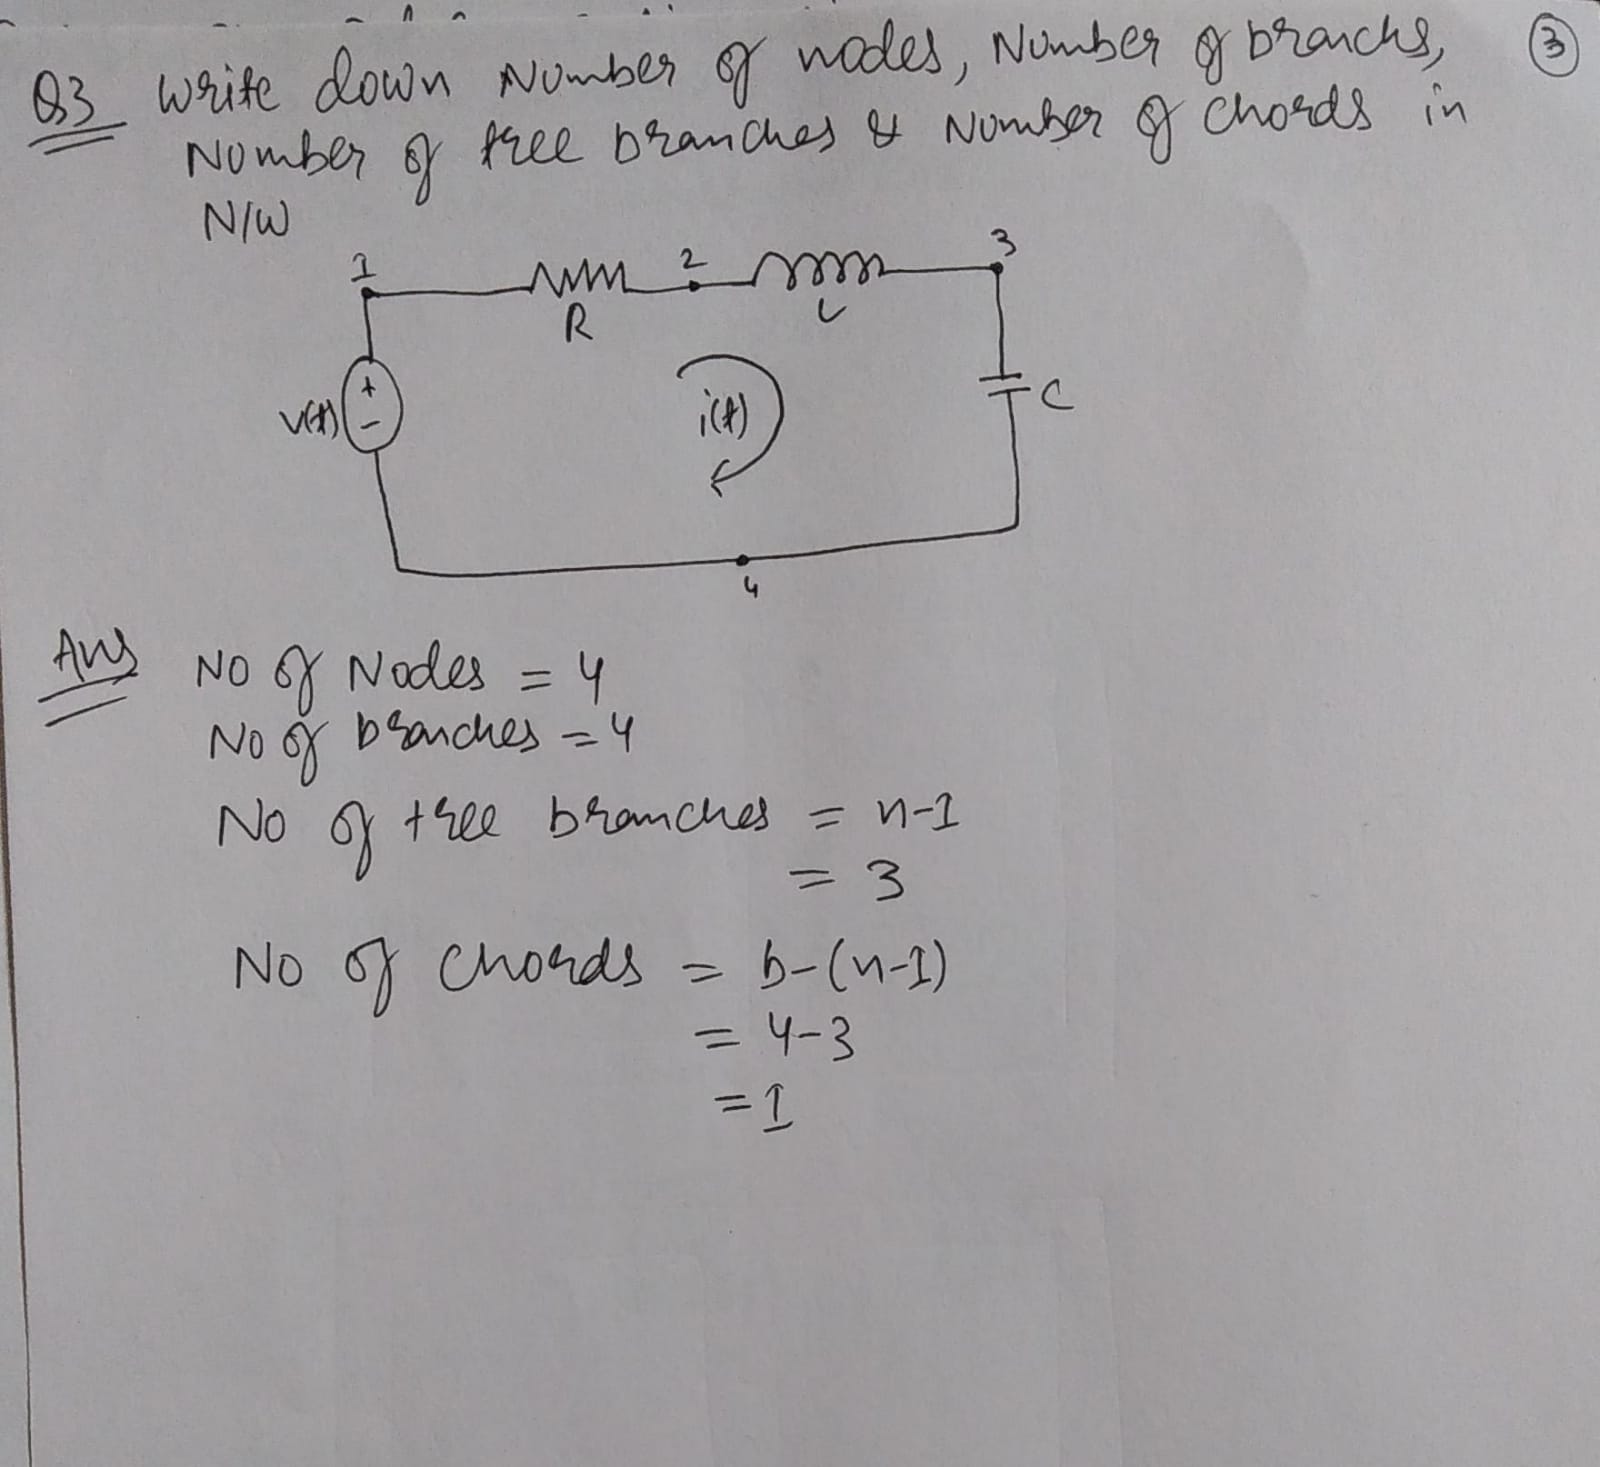 3
Q3 Write down Number of nodes, Number of branchs,
Number of tree branches & Number of Chords in
N/W
1
2
3
R
L
V(t)
+
-
i(t)
C
4
Ans No of Nodes = 4
No of branches = 4
No of tree branches = n-1
= 3
No of Chords = b-(n-1)
= 4-3
= 1